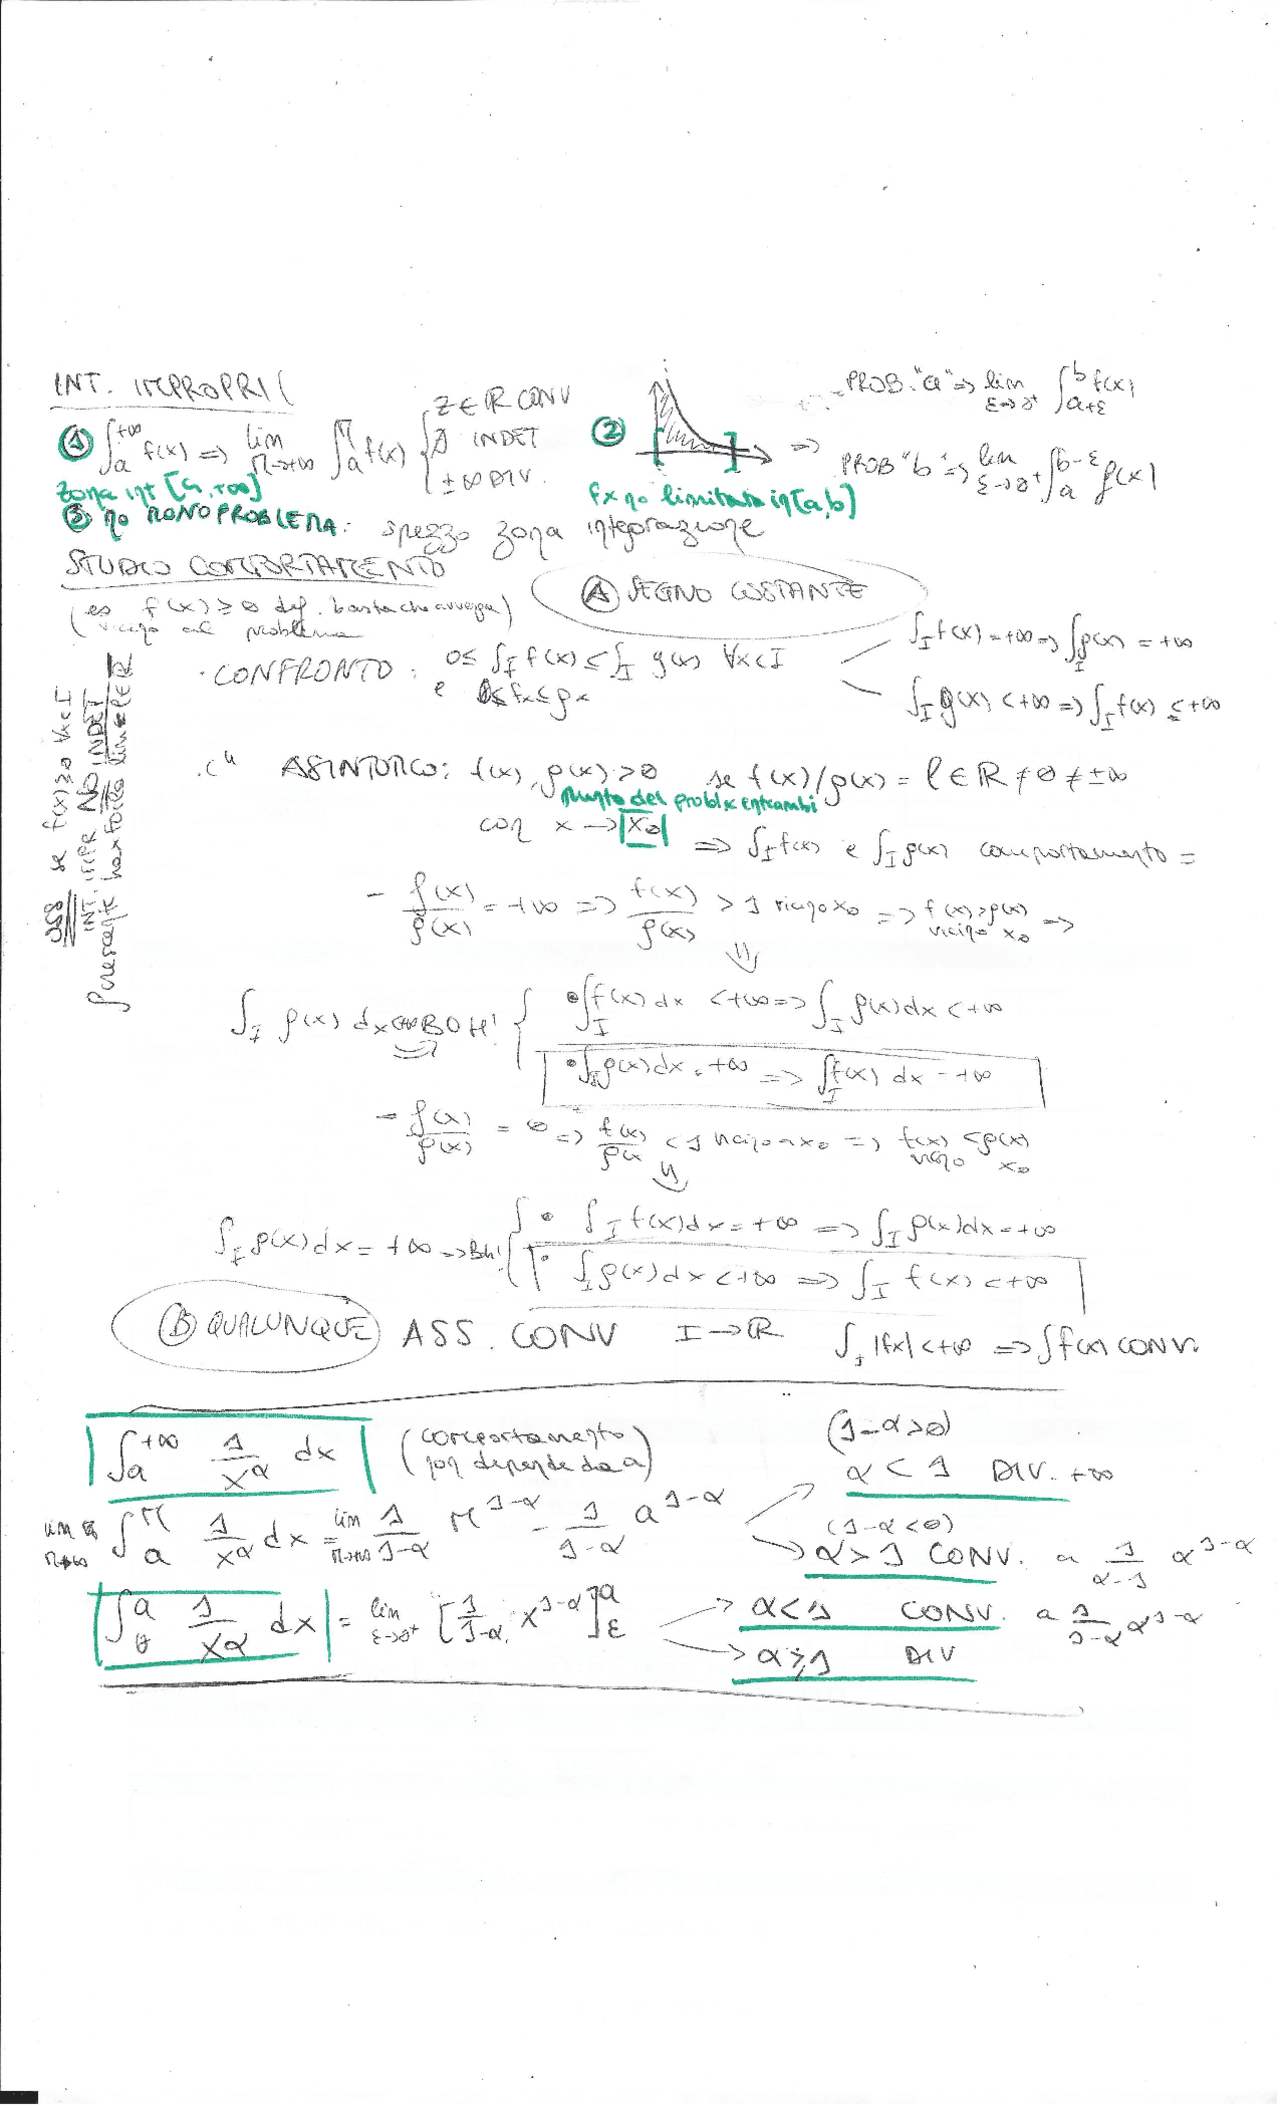 INT. IMPROPRI
① ∫ₐ^{+∞} f(x) => lim_{M→+∞} ∫ₐ^M f(x) { Z∈ℝ CONV
∄ INDET
±∞ DIV.
zona int [a,+∞]
② fx no limitata in [a,b]
=> PROB. "a" => lim_{ε→0⁺} ∫_{a+ε}^b f(x)
PROB "b" => lim_{ε→0⁺} ∫ₐ^{b-ε} f(x)
③ no MONOPROBLEMA: spezzo zona integrazione
STUDIO COMPORTAMENTO
(es f(x)≥0 def. basta che avvenga)
vicino al problema
Ⓐ SEGNO COSTANTE
OSS se f(x)≥0 ∀x∈I
INT. IMPR NO INDET
· CONFRONTO: 0≤ ∫_I f(x) ≤ ∫_I g(x) ∀x∈I
e 0≤fx≤gx
∫_I f(x)=+∞ => ∫_I g(x) = +∞
∫_I g(x) <+∞ => ∫_I f(x) ≤+∞
·C" ASINTOTICO: f(x), g(x) >0 se f(x)/g(x) = l ∈ ℝ ≠0 ≠ ±∞
punto del probl x entrambi
con x → |x₀| => ∫_I f(x) e ∫_I g(x) comportamento =
- f(x)/g(x) = +∞ => f(x)/g(x) > 1 vicino x₀ => f(x)>g(x) vicino x₀ =>
∫_I g(x) dx <+∞ BOH! { • ∫_I f(x) dx <+∞ => ∫_I g(x)dx <+∞
• ∫_I g(x)dx = +∞ => ∫_I f(x) dx = +∞
- f(x)/g(x) = 0 => f(x)/g(x) <1 vicino a x₀ => f(x) <g(x) vicino x₀
∫_I g(x)dx = +∞ => Boh! { • ∫_I f(x)dx = +∞ => ∫_I g(x)dx = +∞
• ∫_I g(x)dx <+∞ => ∫_I f(x) <+∞
Ⓑ QUALUNQUE ASS. CONV I→ℝ ∫_I |fx| <+∞ => ∫f(x) CONV.
∫ₐ^{+∞} 1/x^α dx (comportamento
non dipende da a)
(1-α>0)
α < 1 DIV. +∞
lim_{M→+∞} ∫ₐ^M 1/x^α dx = lim_{M→+∞} 1/(1-α) M^{1-α} - 1/(1-α) a^{1-α}
(1-α<0)
α>1 CONV. a 1/(α-1) α^{1-α}
∫₀^a 1/x^α dx = lim_{ε→0⁺} [1/(1-α) · x^{1-α}]_ε^a
α<1 CONV. a 1/(1-α) α^{1-α}
α≥1 DIV